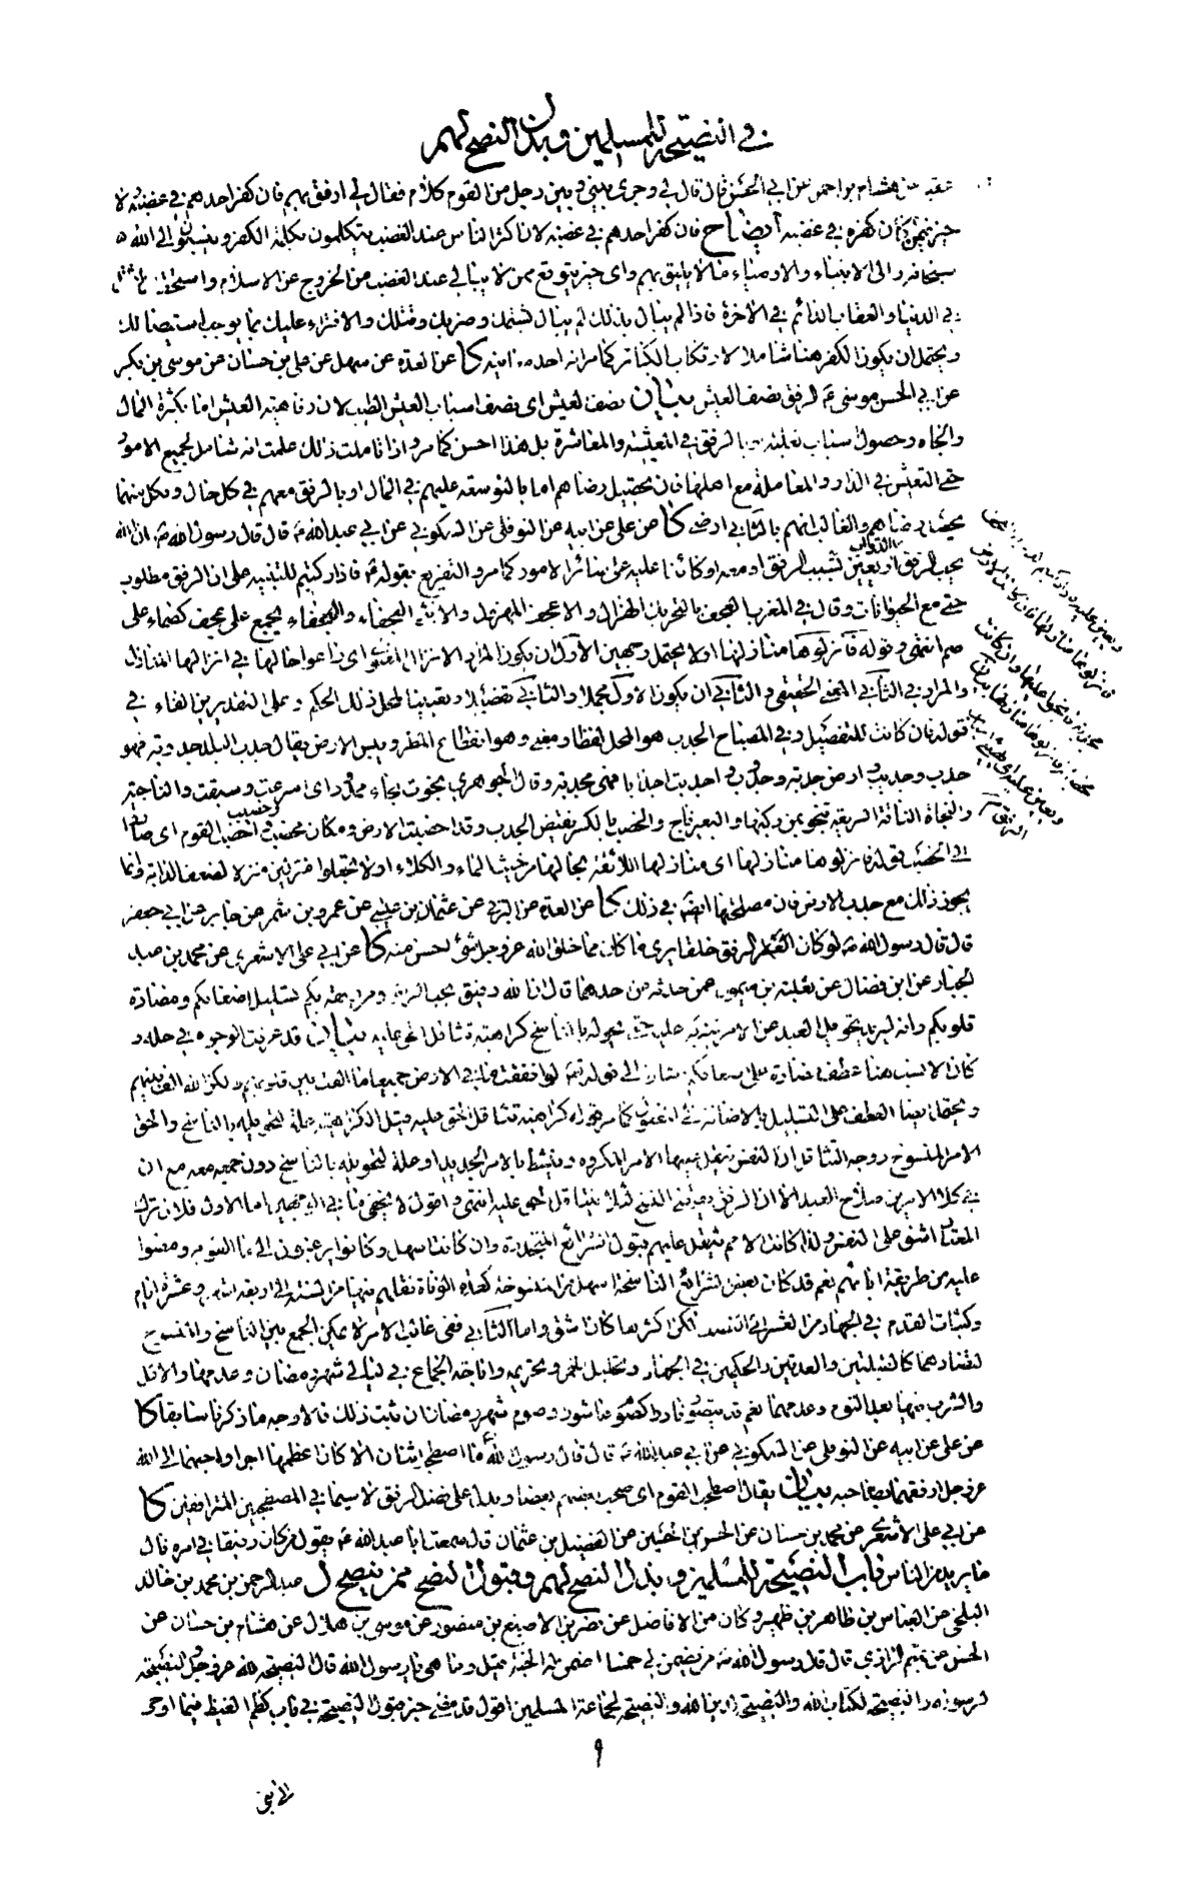 في النصيحة للمسلمين وبذل النصح لهم
عن هشام بن احمر عن ابي الحسن قال قال لي وجرى بيني وبين رجل من القوم كلام فقال لي ارفق بهم فان كفر احدهم في غضبه ولا
خير فيمن كان كفره في غضبه ايضاح فان كفر احدهم في غضبه لان اكثر الناس عند الغضب يتكلمون بكلمة الكفر وينسبون الى الله
سبحانه والى الانبياء والاوصياء ما لا يليق بهم واى خير يتوقع ممن لا يبالي عند الغضب من الخروج عن الاسلام واستحقاق
في الدنيا والعقاب الدائم في الاخرة فاذا لم يبال بذلك لم يبال بشتمك وضربك وقتلك والافتراء عليك بما يوجب استيصالك
ويحتمل ان يكون الكفر هنا شاملا لارتكاب الكبائر كما مر انه احد معانيه كا عن العدة عن سهل عن علي بن حسان عن موسى بن بكر
عن ابي الحسن موسى ع الرفق نصف العيش بيان نصف العيش اى نصف اسباب العيش الطيب لان رفاهية العيش اما بكثرة المال
والجاه وحصول اسباب الغلبة او بالرفق في المعيشة والمعاشرة بل هذا احسن كما مر واذا تاملت ذلك علمت انه شامل لجميع الامور
حتى التعيش في الدار والمعاملة مع اهلها فان تحصيل رضاهم اما بالتوسعة عليهم في المال او بالرفق معهم في كل حال وبكل منهما
يحصل رضاهم والغالب انهم بالثاني ارضى كا عن علي عن ابيه عن النوفلي عن السكوني عن ابي عبد الله ع قال قال رسول الله ص ان الله
يحب الرفق ويعين عليه فاذا ركبتم الدواب
حتى مع الحيوانات وقال في المغرب العجف بالتحريك الهزال والاعجف المهزول والانثى العجفاء والعجفاء يجمع على عجف كصماء على
صم انتهى وقوله فانزلوها منازلها اولا يحتمل وجهين الاول ان يكون المراد الانزال
والمراد في الثاني المعنى الحقيقي والثاني ان يكون الاول مجملا والثاني تفصيلا وتعيينا لمحل ذلك الحكم وعلى التقديرين الفاء في
قوله فان كانت للتفصيل وفي المصباح الجدب هو المحل لفظا ومعنى وهو انقطاع المطر ويبس الارض يقال جدب البلد جدوبة فهو
جدب وجديب وارض جدبة وجدوب واجدبت اجدابا فهي مجدبة وقال الجوهري نجوت نجاء ممدود اى اسرعت وسبقت والناجية
والنجاة الناقة السريعة تنجو بمن ركبها والبعير ناج والخصب بالكسر نقيض الجدب وقد اخصبت الارض ومكان مخصب وخصيب واخصب القوم اى صاروا
الى الخصب قوله فانزلوها منازلها اى منازلها اللائقة بحالها من حيث الماء والكلاء او لا تجعلوا منزلين منزلا لضعف الدابة وانما
يجوز ذلك مع جدب الارض فان مصلحتها ايضا في ذلك كا عن العدة عن البرقي عن عثمان بن عيسى عن عمرو بن شمر عن جابر عن ابي جعفر
قال قال رسول الله ص لو كان الرفق خلقا يرى ما كان مما خلق الله عز وجل شئ احسن منه كا عن ابي علي الاشعري عن محمد بن عبد
الجبار عن ابن فضال عن ثعلبة بن ميمون عمن حدثه عن احدهما قال ان الله رفيق يحب الرفق ومن رفقه بكم تسليل اضغانكم ومضادة
قلوبكم وانه ليريد تحويل العبد عن الامر فيتركه عليه حتى يحوله بالناسخ كراهية تثاقل الحق عليه بيان قد عرفت الوجوه في حله و
كان الانسب هنا عطف مضادة على اضغانكم اشارة الى قوله تعالى لو انفقت ما في الارض جميعا ما الفت بين قلوبهم ولكن الله الف بينهم
ويحتمل ايضا العطف على التسليل بالاضافة كما مر قوله كراهية تثاقل الحق عليه قيل الكراهية علة لتحويله بالناسخ والحق
الامر المنسوخ ووجه التثاقل ان النفس يثقل عليها الامر المكروه وينشط بالامر الجديد او علة لتحويله بالناسخ دون جمعه معه مع ان
في كلا الامرين صلاح العبد الا ان الرفق يقتضي النسخ لئلا يتثاقل الحق عليه انتهى واقول لا يخفى ما في الوجهين اما الاول فلان ترك
المعتاد اشق على النفس ولذا كانت الامم يثقل عليهم قبول الشرائع المتجددة وان كانت اسهل وكانوا يرغبون الى ما الفوا به ومضوا
عليه من طريقة ابائهم نعم قد كان بعض الشرائع الناسخة اسهل من المنسوخة كعدة الوفاة نقلهم فيها من السنة الى اربعة اشهر وعشرة ايام
وكثبات القدم في الجهاد من العشر الى اثنين لكن اكثرها كان اشق واما الثاني ففي غالب الامر لا يمكن الجمع بين الناسخ والمنسوخ
لتضادهما كالقبلتين والعدتين والحكمين في الجهاد وتحليل الخمر وتحريمه واباحة الجماع في ليالي شهر رمضان وعدمها والاكل
والشرب فيها بعد النوم وعدمهما نعم قد يتصور نادرا كصوم عاشورا وصوم شهر رمضان ان ثبت ذلك فالاوجه ما ذكرنا سابقا كا
عن علي عن ابيه عن النوفلي عن السكوني عن ابي عبد الله ع قال قال رسول الله ص ما اصطحب اثنان الا كان اعظمهما اجرا واحبهما الى الله
عز وجل ارفقهما بصاحبه بيان يقال اصطحب القوم اى صحب بعضهم بعضا ويدل على فضل الرفق لا سيما في المصطحبين المترافقين كا
عن ابي علي الاشعري عن محمد بن حسان عن الحسن بن الحسين عن الفضيل بن عثمان قال سمعت ابا عبد الله ع يقول من كان رفيقا في امره نال
ما يريد من الناس باب النصيحة للمسلمين وبذل النصح لهم وقبول النصح ممن ينصح ل عبد الرحمن بن محمد بن خالد
البلخي عن العباس بن طاهر بن ظهير وكان من الافاضل عن نصر بن الاصبغ بن منصور عن موسى بن هلال عن هشام بن حسان عن
الحسن عن تميم الداري قال قال رسول الله ص من يضمن لي خمسا اضمن له الجنة قيل وما هي يا رسول الله قال النصيحة لله عز وجل والنصيحة
لرسوله والنصيحة لكتاب الله والنصيحة لدين الله والنصيحة لجماعة المسلمين اقول قد مضى خبر قبول النصيحة في باب كظم الغيظ فيما اوحى
٩